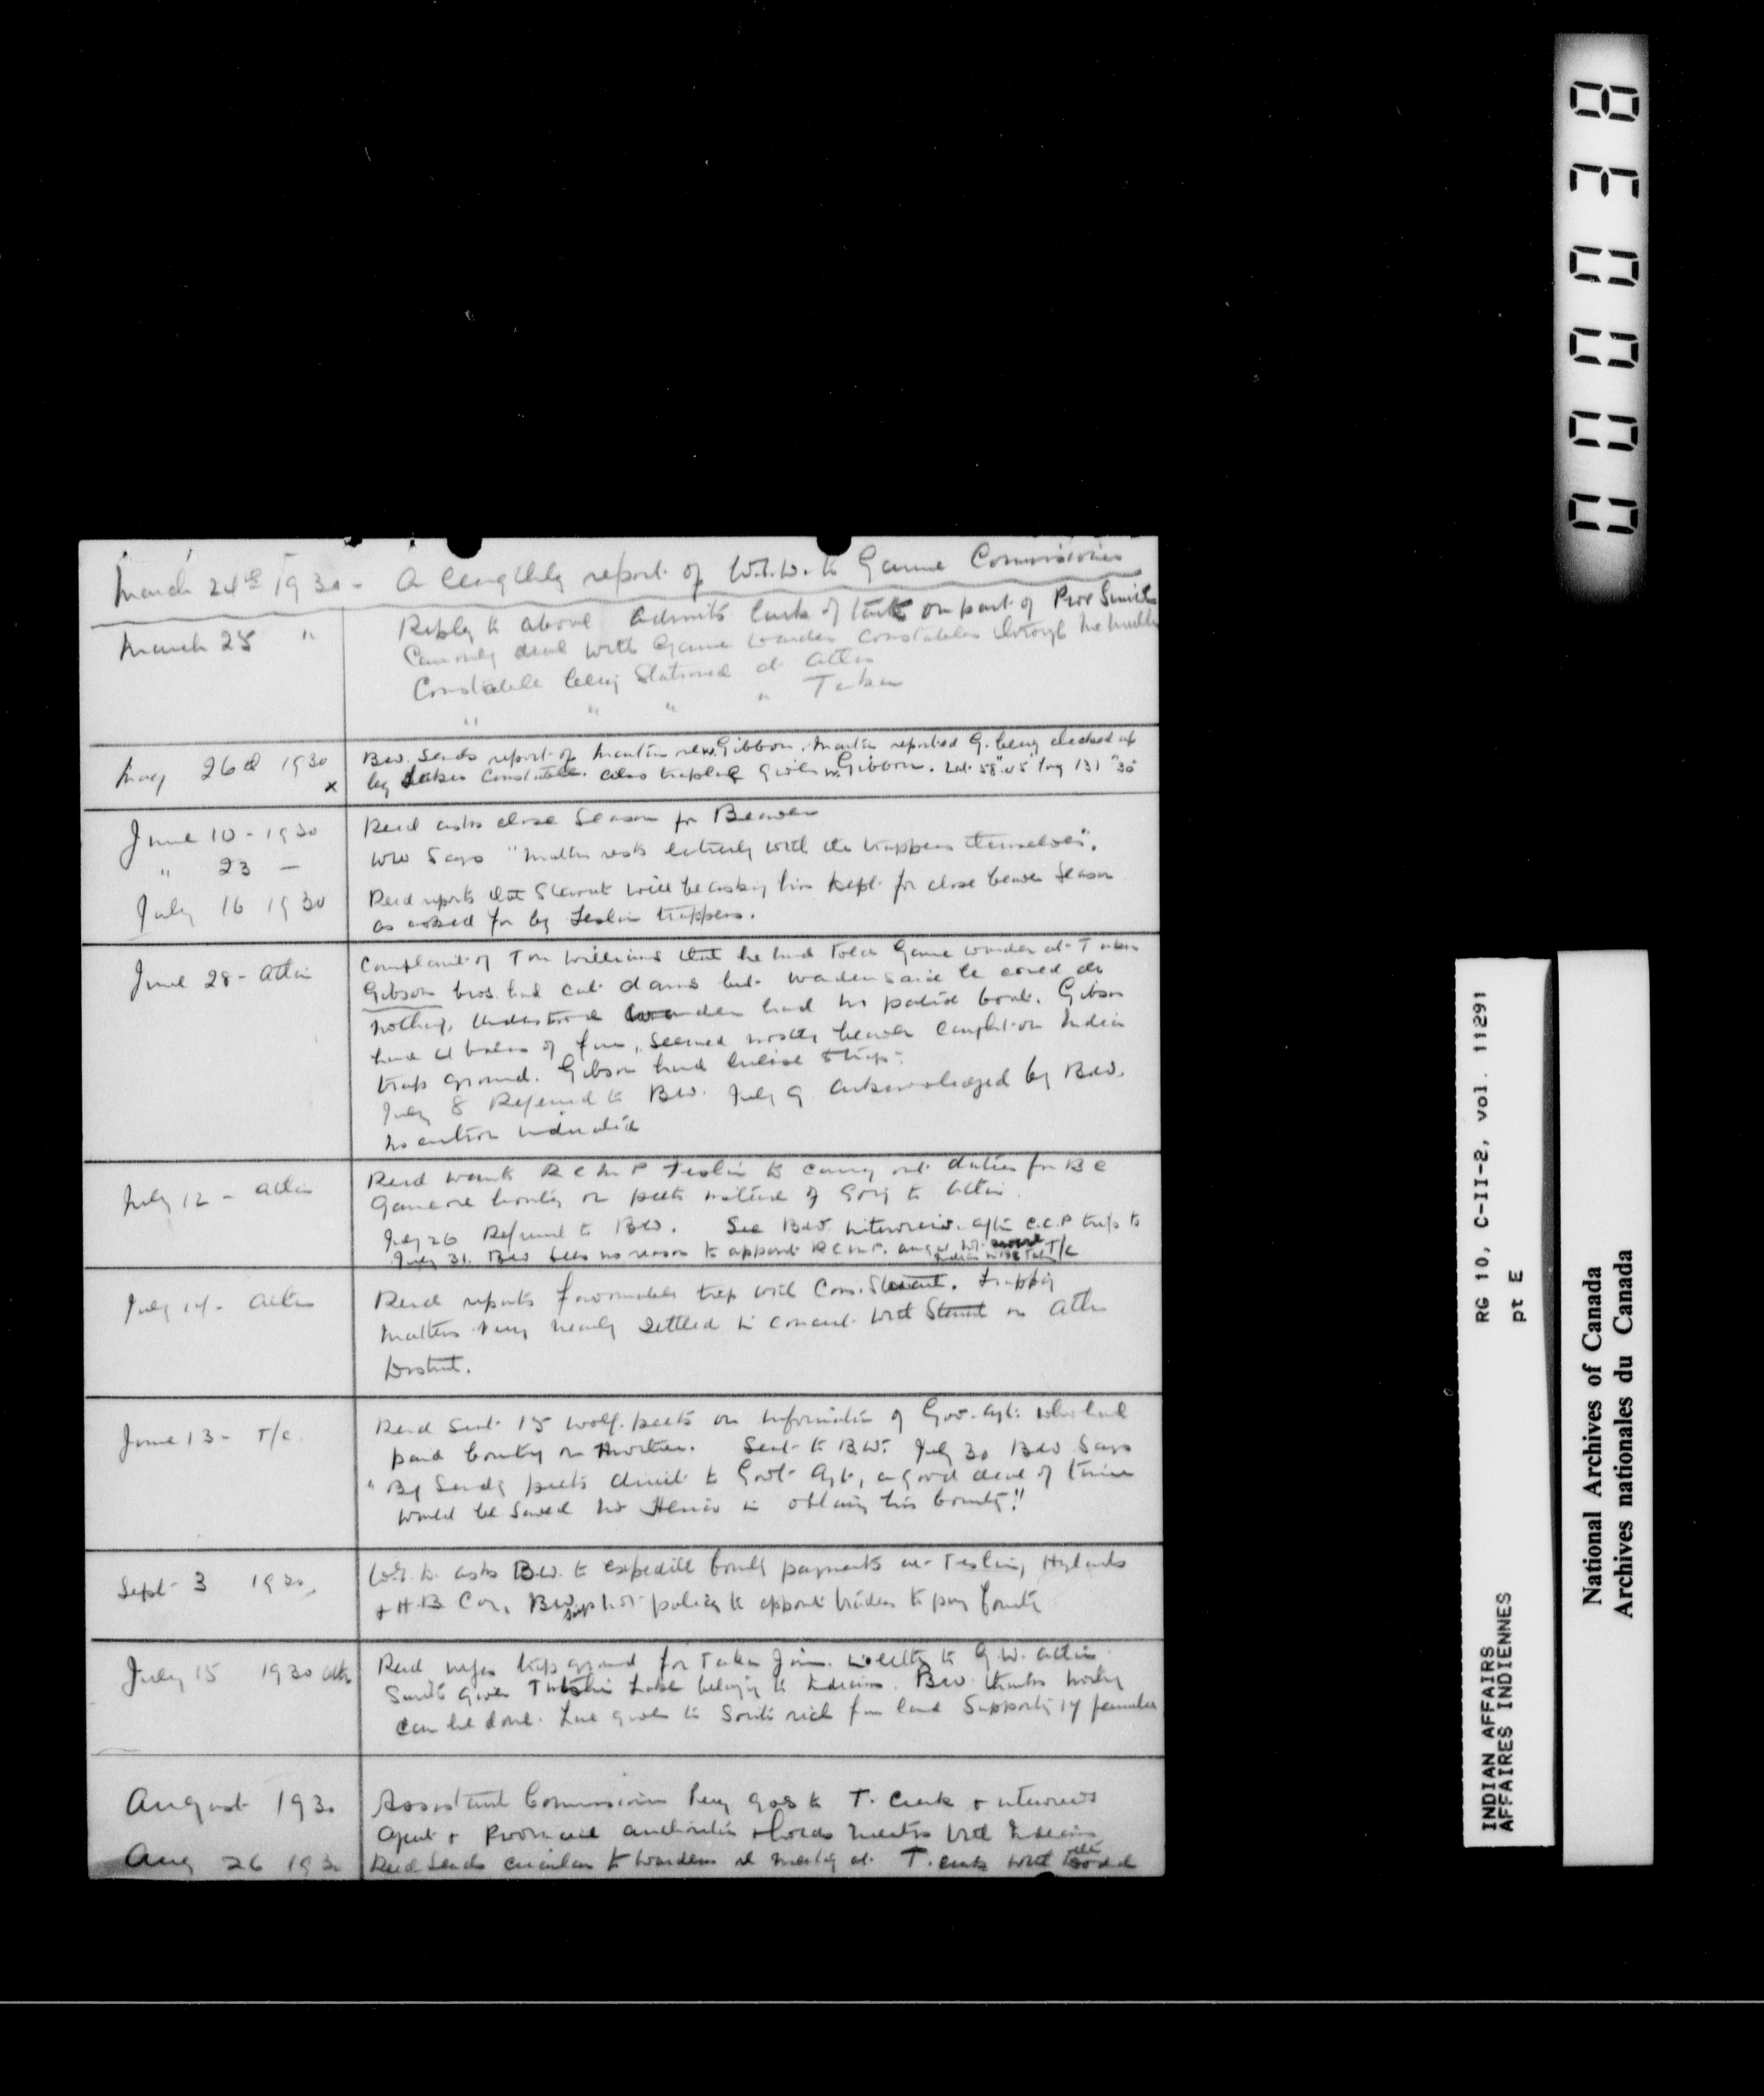 March 24th 1930 - A lengthly report of W.S.W. to Game Commissioner
March 25 " Reply to above admits lack of on part of Smith
Can only deal with Game Warden Constables through
Constable being stationed at Atlin
" " " " Taku
May 26th 1930 B.W. Sends report of Martin re W. Gibbon. Martin reported G. being checked up
x by Constable. also trapline given W. Gibbon. Lat. 58" 05' Long 131 "30
June 10 - 1930 Reed asks close Season for Beaver
" 23 - BW Says "matter rests entirely with the trappers themselves".
July 16 1930 Reed reports that Stewart will be asking his Dept. for close beaver Season
as asked for by Teslin trappers.
June 28 - Atlin Complaint of Tom Williams that he had told Game Warden at Taku
Gibson bros. had cut dams but Warden said he could do
nothing, understood Warden had no patrol boat. Gibson
had bales of fur, seemed mostly beaver caught on Indian
trap ground. Gibson had
July 8 Referred to B.W. July 9 acknowledged by B.W.
No action indicated
July 12 - Atlin Reed wants R C M P Teslin to carry out duties for B C
Game re bounty on pelts instead of going to Atlin.
July 26 Referred to B.W. See B.W. interview. after C.C.P trip to
July 31. BW sees no reason to appoint R C M P. T/C
July 14 - Atlin Reed reports favourable trip with Cons. Stewart. Trapping
matters very nearly settled in concert with Stewart in Atlin
District.
June 13 - T/C. Reed sent 15 wolf pelts on information of Gov. Agt. who had
paid bounty on another. Sent to B.W. July 30 BW Says
"By sending pelts direct to Govt Agt, a good deal of time
would be saved in obtaining his bounty"!!
Sept 3 1930, W.S.W. asks B.W. to expedite bounty payments at Teslin, Hylands
+ H.B Coy, BW says not policy to appoint traders to pay bounty
July 15 1930 Atlin Reed trap ground for Taku Jim. in letter to G.W. Atlin.
Smith given Lake belonging to Indians. B.W. thinks nothing
can be done. Line given to Smith rich fur land Supporting 17 families
August 1930 Assistant Commissioner Perry goes to T. Creek + interviews
Agent + Provincial authorities + holds meeting with Indians
Aug 26 1930 Reed sends circular to Wardens re meeting at T. Creek with
000038
INDIAN AFFAIRS RG 10, C-II-2, vol. 11291
AFFAIRES INDIENNES pt E
National Archives of Canada
Archives nationales du Canada